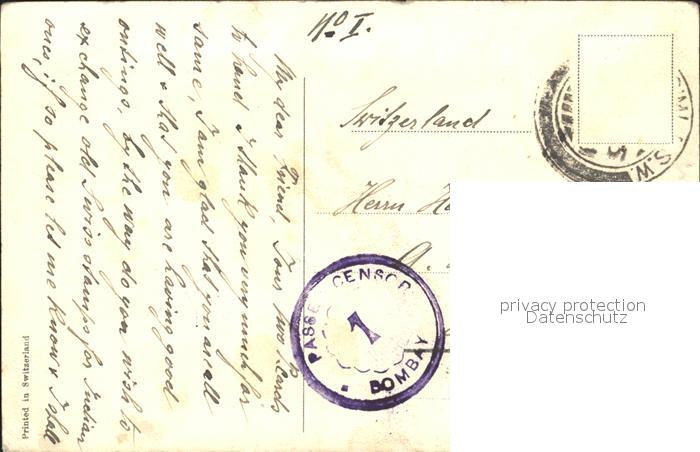 No I.
My dear Friend, Your two Cards
to hand I thank you very much for
same, I am glad that you are all
well & that you are having good
outings, by the way do you wish to
exchange old Swiss stamps for Indian
ones, if so please let me know & I shall
Printed in Switzerland
Switzerland
Herrn
PASSED CENSOR
1
BOMBAY
privacy protection
Datenschutz